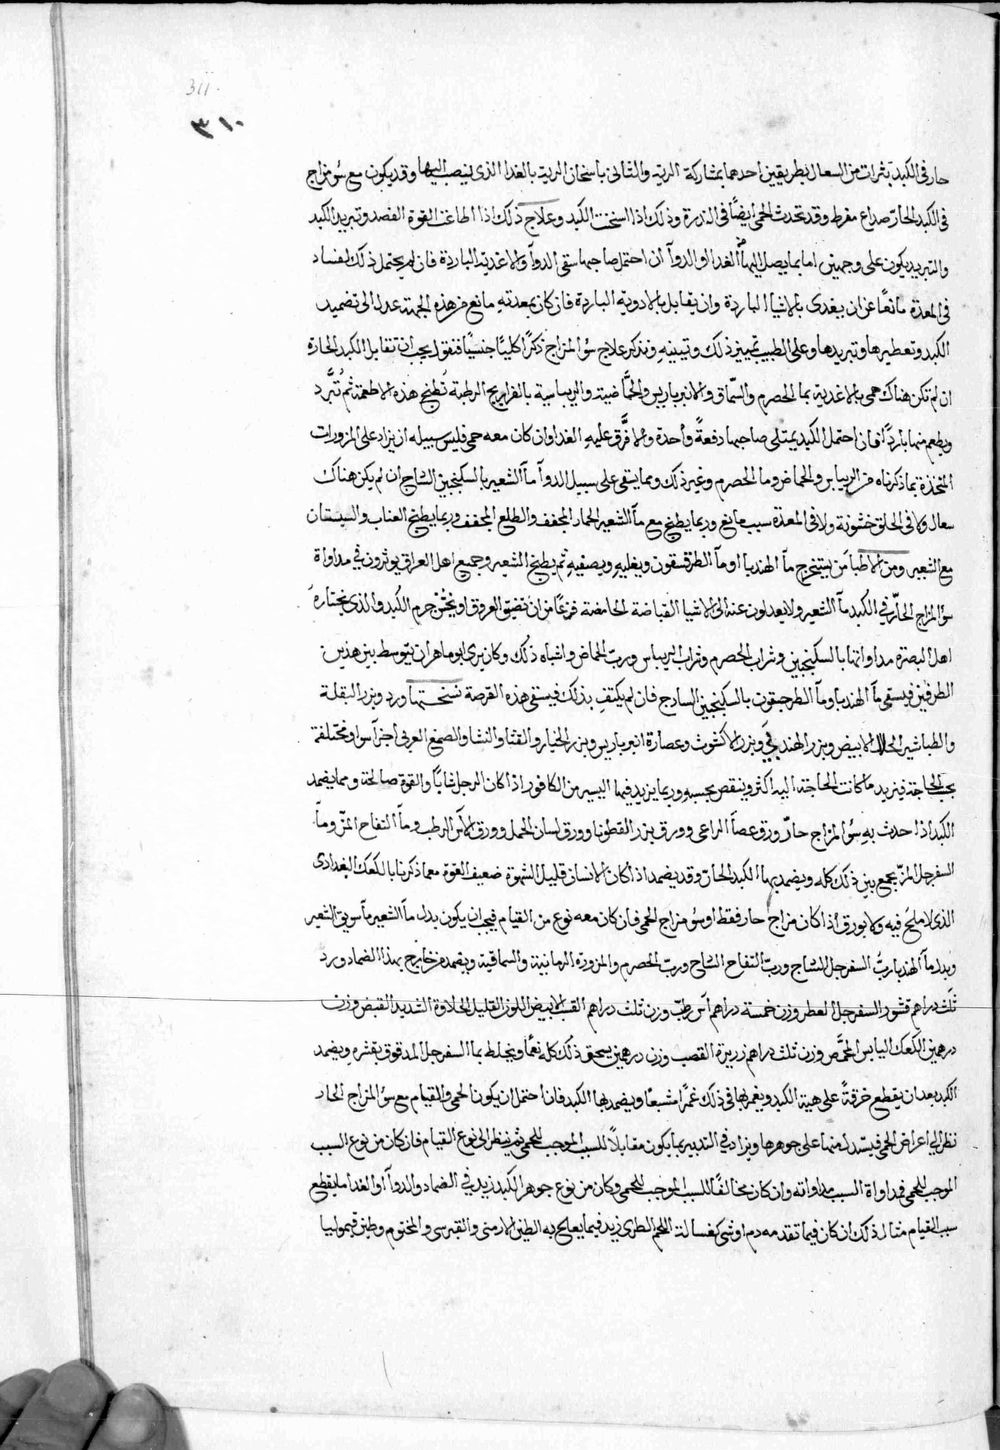 311
٣١٠
حار فى الكبد بثرات من السعال بطريقين احدهما بمشاركة الرية والثانى باسخان الرية بالغدا الذى ينصب اليها وقد يكون مع سؤ مزاج
فى الكبد الحار صداع مفرط وقد تحدث الحمى ايضًا فى الندرة وذلك اذا اسخنت الكبد وعلاج ذلك اذا اطاعت القوة الفصد وتبريد الكبد
والتبريد يكون على وجهين اما بما يصل اليها من الغدا او الدوآ ان احتمل صاحبها سقى الدوآ والاغدية الباردة فان لم يحتمل ذلك لفساد
فى المعدة مانعًا عن ان يغدى بالاشيا الباردة وان يقابل بالادوية الباردة فان كان بمعدته مانع من هذه الجهة عدل الى تضميد
الكبد وتعطيرها وتبريدها وعلى الطبيب تمييز ذلك وتبيينه ونذكر علاج سؤ المزاج ذكرًا كليًا جنسيًا فنقول يجب ان تقابل الكبد الحارة
ان لم تكن هناك حمى بالاغدية بما الحصرم والسماق والانبرباريس والحماضية والريباسية بالفراريج الرطبة تطبخ هذه الاطعمة ثم تبرد
ويطعم منها باردًا فان احتمل الكبد يمتلى صاحبها دفعةً واحدة والا فرّق عليه الغدا وان كان معه حمى فليس سبيله ان يزاد على المزورات
المتخذة بما ذكرناه من الريباس والحماض وما الحصرم وغير ذلك ومما يسقى على سبيل الدوآ مآ الشعير بالسكنجبين الساج ان لم يكن هناك
سعال ولا فى الحلق خشونة ولا فى المعدة سبب مانع وربما يطبخ مع مآ الشعير الجمار المجفف والطلع المجفف وربما يطبخ العناب والسبستان
مع الشعير ومن الاطبا من يستخرج مآ الهندبا او مآ الطرقسقون ويغليه ويصفيه ثم يطبخ الشعير وجميع اهل العراق يوثرون فى مداواة
سؤ المزاج الحار فى الكبد مآ الشعير ولا يعدلون عنه الى الاشيا القباضة الحامضة فزعًا من ان تضيق العروق او يخشن جرم الكبد والذى يختاره
اهل البصرة مداواتها بالسكنجبين وشراب الحصرم وشراب الريباس ورب الحماض واشباه ذلك وكان يرى ابو ماهر ان يتوسط بين هذين
الطرفين فيسقى مآ الهندبا ومآ الطرحشقون بالسكنجبين السادج فان لم يكتف بذلك فيسقى هذه القرصة نسختها ورد وبزر البقلة
والطباشير الابيض وبزر الهندبى وبزر الاكشوث وعصارة انبرباريس وبزر الخيار والقثا والنشا والصمغ العربى اجزآ سوا ومختلفة
بحسب الحاجة فيزيد ما كانت الحاجة اليه اكثر وينقص بحسبه وربما يزيد فيها اليسير من الكافور اذا كان الرجل شابًا والقوة صالحة ومما يضمد
الكبد اذا حدث به سؤ المزاج حار ورق عصا الراعى وورق بزر القطونا وورق لسان الحمل وورق الاس الرطب ومآ التفاح المز ومآ
السفرجل المز يجمع بين ذلك كله ويضمد بها الكبد الحار وقد يضمد اذا كان الانسان قليل الشهوة ضعيف القوة معما ذكرنا بالكعك البغدادى
الذى لا ملح فيه ولا بورق اذا كان مزاج حار فقط او سؤ مزاج الحمى فان كان معه نوع من القيام فيجب ان يكون بدل مآ الشعير مآ سويق الشعير
وبدل مآ الهندبا رب السفرجل الساج ورب التفاح الساج ورب الحصرم والمزورة الرمانية والسماقية ويضمد من خارج بهذا الضماد ورد
ثلث دراهم قشور السفرجل العطر وزن خمسة دراهم آس رطب وزن ثلث دراهم القسب الابيض اللوز القليل الحلاوة الشديد القبض وزن
درهمين الكعك اليابس المحمص وزن ثلث دراهم زريرة القصب وزن درهمين يسحق ذلك كله نعمًا ويخلط بما السفرجل المدقوق بقشره ويضمد
الكبد بعد ان يقطع خرقةً على هيئة الكبد ويغمرها فى ذلك غمرًا مشبعًا ويضمد بها الكبد فان احتمل ان يكون الحمى والقيام مع سؤ المزاج الحار
نظر الى اعراض الحمى فيستدل منها على جوهرها ويزاد فى التدبير بما يكون مقابلًا للسبب الموجب للحمى ثم ينظر الى نوع القيام فان كان من نوع السبب
الموجب للحمى فمداواة السبب مداواته وان كان مخالفًا للسبب الموجب للحمى وكان من نوع جوهر الكبد زيد فى الضماد والدوآ او الغدا ما يقطع
سبب القيام مثال ذلك ان كان فيما تقدمه دم او شى كغسالة اللحم الطرى زيد فيما يعالج به الطين الارمنى والقبرسى والمختوم وطين قيموليا